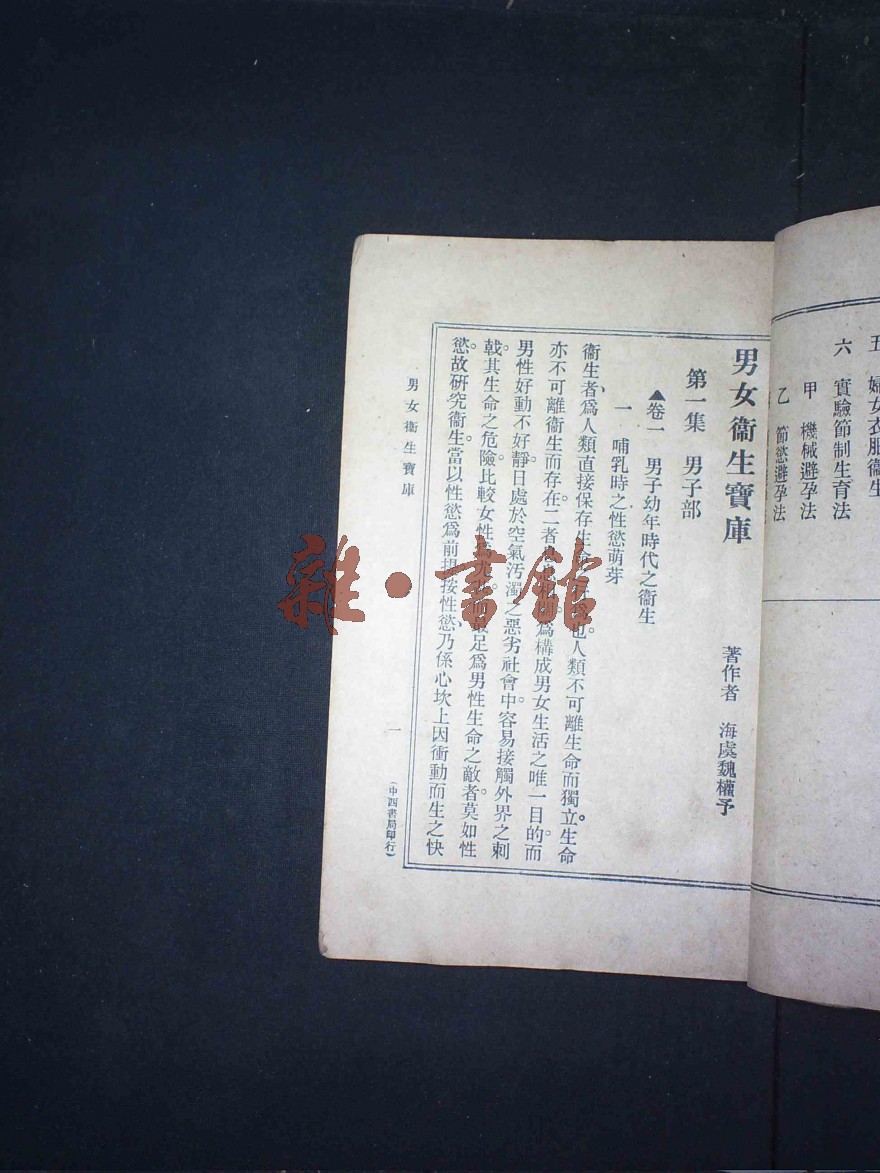 五 婦女衣服衞生
六 實驗節制生育法
甲 機械避孕法
乙 節慾避孕法
男女衞生寶庫
著作者 海虞魏權予
第一集 男子部
▲卷一 男子幼年時代之衞生
一 哺乳時之性慾萌芽
衞生者、爲人類直接保存生命 也。人類不可離生命而獨立。生命
亦不可離衞生而存在。二者 爲構成男女生活之唯一目的。而
男性好動不好靜。日處於空氣汚濁之惡劣社會中。容易接觸外界之刺
戟。其生命之危險。比較女性 最足爲男性生命之敵者。莫如性
慾。故研究衞生。當以性慾爲前提。按性慾、乃係心坎上因衝動而生之快
男女衞生寶庫
一
(中西書局印行)
雜·書館